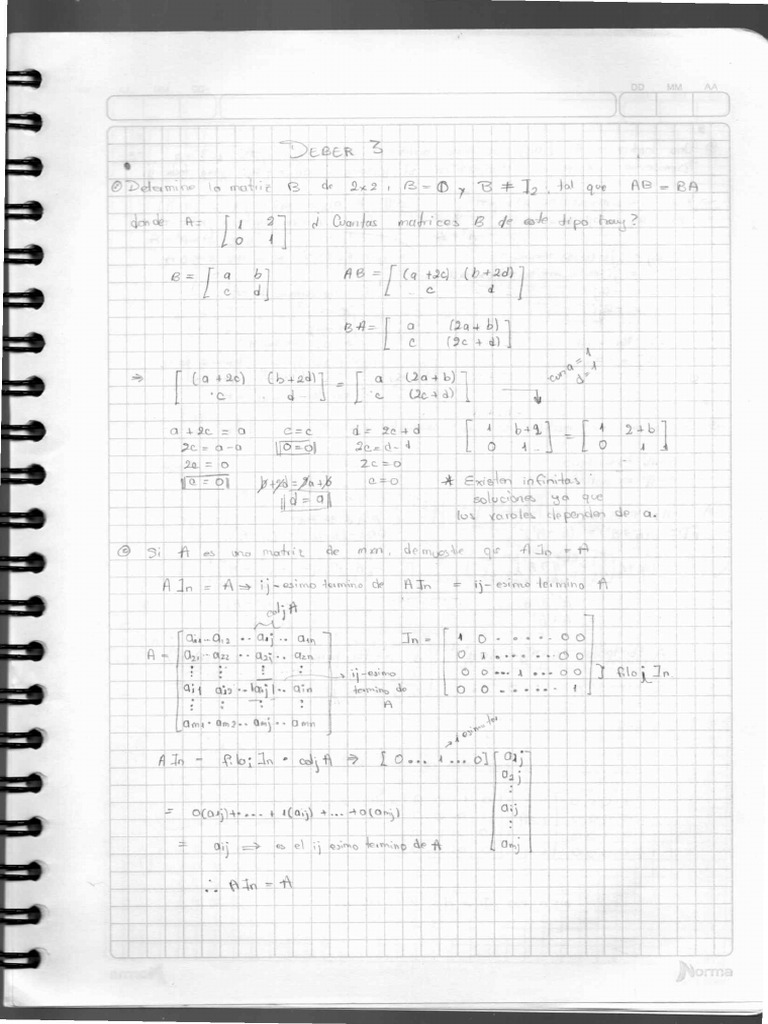 DD MM AA
DEBER 3
Determine la matriz B de 2x2, B = O y B ≠ I₂, tal que AB = BA
donde A = [1 2; 0 1] ¿ Cuantas matrices B de este tipo hay?
B = [a b; c d] AB = [(a +2c) (b+2d); c d]
BA = [a (2a+b); c (2c+d)]
⇒ [(a+2c) (b+2d); c d] = [a (2a+b); c (2c+d)] con a = 1 d = 1
a + 2c = a c = c d = 2c+d [1 b+2; 0 1] = [1 2+b; 0 1]
2c = a-a 0=0 2c = d-d
2a = 0 2c = 0
a = 0 b+2d = 2a+b c = 0 * Existen infinitas
d = a soluciones ya que
las varables dependen de a.
Si A es una matriz de mxn, demueste que A In = A
A In = A ⇒ ij-esimo termino de A In = ij-esimo termino A
colj A
A = [a11 a12 .. a1j .. a1n; a21 a22 .. a2j .. a2n; ⋮ ⋮ ⋮ ⋮; ai1 ai2 .. aij .. ain; ⋮ ⋮ ⋮ ⋮; am1 am2 .. amj .. amn] In = [1 0 ...... 0 0; 0 1 ...... 0 0; 0 0 ... 1 ... 0 0; 0 0 ...... 1] } filaj In
→ ij-esimo
termino de
A
A In = filaj In • colj A ⇒ [0 ... 1 ... 0] [a1j; a2j; ⋮; aij; ⋮; amj]
= 0(a1j)+ .... + 1(aij) + ... + 0(amj)
= aij ⇒ es el ij esimo termino de A
∴ A In = A
Norma